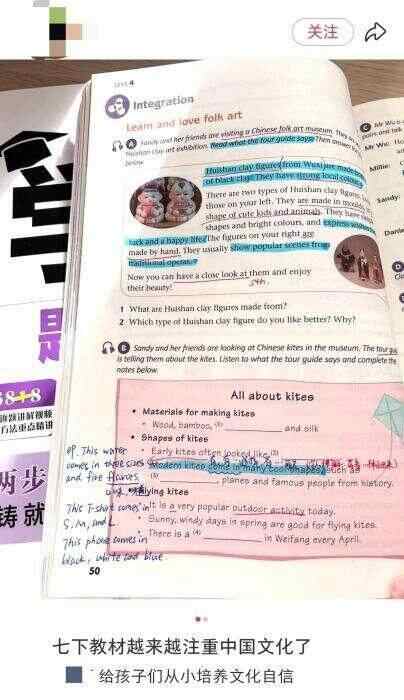 关注
LEVEL 4
Integration
Learn and love folk art
A Sandy and her friends are visiting a Chinese folk art museum. They
Huishan clay art exhibition. Read what the tour guide says. Then answer
below.
Huishan clay figures from Wuxi are made
of black clay. They have strong local colour
There are two types of Huishan clay figures.
those on your left. They are made in moulds
shape of cute kids and animals. They have
shapes and bright colours, and express wishes
luck and a happy life. The figures on your right are
made by hand. They usually show popular scenes from
traditional operas.
Now you can have a close look at them and enjoy
their beauty!
sth.
1 What are Huishan clay figures made from?
2 Which type of Huishan clay figure do you like better? Why?
B Sandy and her friends are looking at Chinese kites in the museum. The tour guide
is telling them about the kites. Listen to what the tour guide says and complete the
notes below.
All about kites
• Materials for making kites
• Wood, bamboo, (1) and silk
• Shapes of kites
• Early kites often looked like (2)
• Modern kites come in many cool shapes, such as
(3) , planes and famous people from history.
• Flying kites
• It is a very popular outdoor activity today.
• Sunny, windy days in spring are good for flying kites.
• There is a (4) in Weifang every April.
eg. This water
comes in three sizes
and five flavors.
This T-shirt comes in
S, M, and L.
This phone comes in
black, white and blue.
50
C Mr Wu
Mr Wu:
Millie:
Sandy:
Danie
D
学
是
58+8
题讲解视频
方法重点精讲
两步
铸就
七下教材越来越注重中国文化了
给孩子们从小培养文化自信